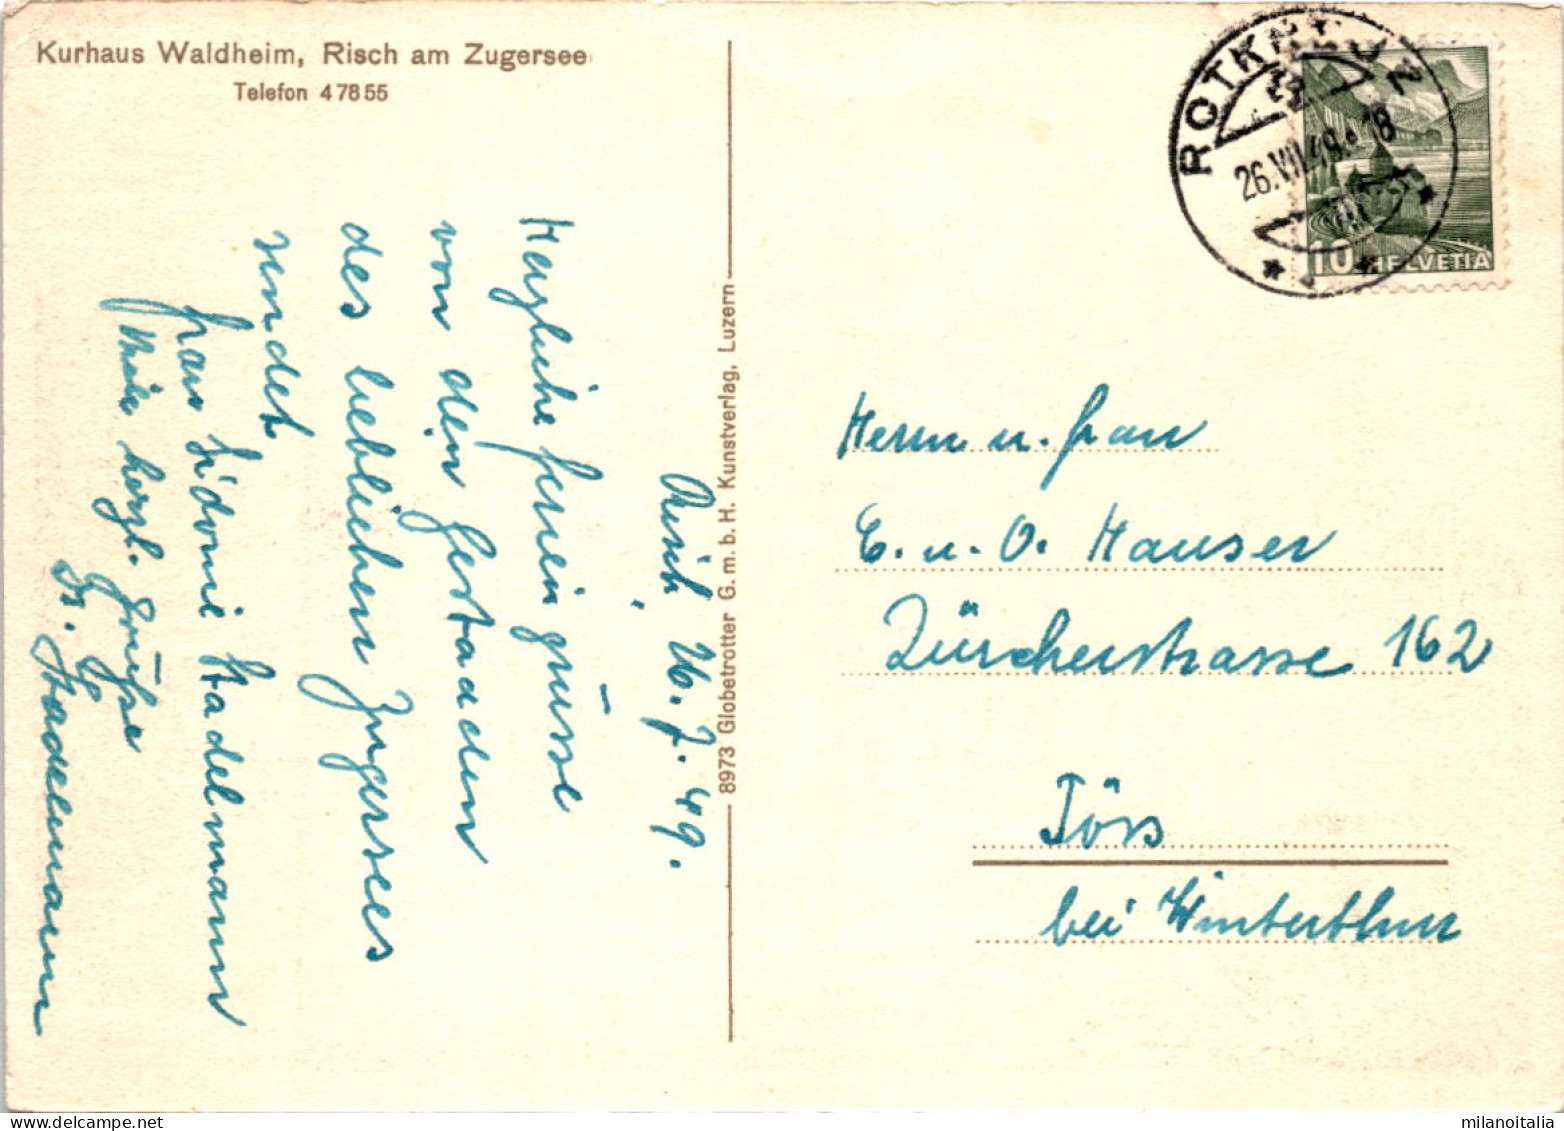 Kurhaus Waldheim, Risch am Zugersee
Telefon 4 78 55
ROTKREUZ
26.VII.49. 18
10 HELVETIA
8973 Globetrotter G. m. b. H. Kunstverlag, Luzern
Risch, 26. 7. 49.
Herzliche feriengrüsse
von den gestaden
des lieblichen Zugersees
sendet
frau Sidonie Stadelmann
herzl. Grüsse
Stadelmann
Herrn u. frau
E. u. O. Hauser
Zürcherstrasse 162
Töss
bei Winterthur
milanoitalia